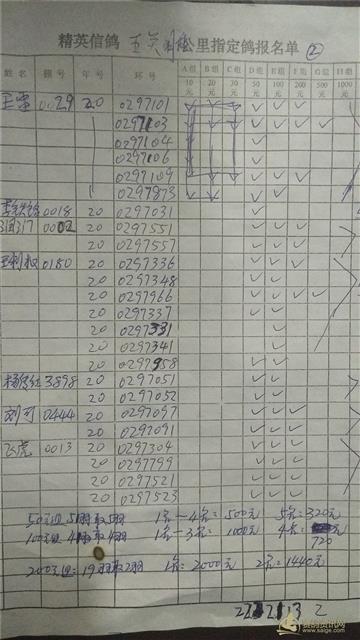 精英信鸽 公里指定鸽报名单 ②
姓名 棚号 年号 环号 A组 B组 C组 D组 E组 F组 G组 H组
10元 20元 30元 50元 100元 200元 500元 1000元
0029 20 0297101
0297103
0297104
0297106
0297109
0297873
0018 20 0297031
0002 20 0297551
20 0297557
0180 20 0297336
20 0297348
20 0297966
20 0297337
20 0297331
20 0297341
20 0297958
3898 20 0297051
20 0297052
刘可 0444 20 0297097
20 0297091
飞虎 0013 20 0297304
20 0297799
20 0297521
20 0297523
50元组 5羽 1名—4名=500元 5名=320元
100元组 4羽 1名—3名=1000元 4名=
720
200元组=19羽取2羽 1名=2000元 2名=1440元
13 2
赛鸽资讯网
www.saige.com